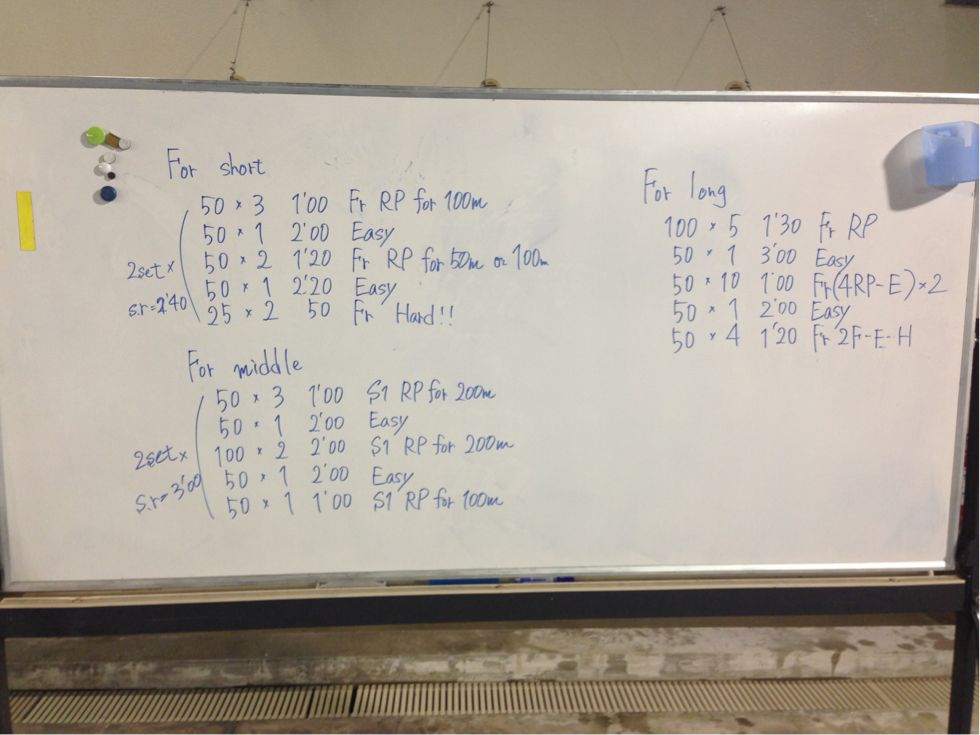 For short
50 × 3 1'00 Fr RP for 100m
50 × 1 2'00 Easy
2set × 50 × 2 1'20 Fr RP for 50m or 100m
50 × 1 2'20 Easy
s.r=2'40 25 × 2 50 Fr Hard!!
For middle
50 × 3 1'00 S1 RP for 200m
50 × 1 2'00 Easy
2set × 100 × 2 2'00 S1 RP for 200m
50 × 1 2'00 Easy
S.r=3'00 50 × 1 1'00 S1 RP for 100m
For long
100 × 5 1'30 Fr RP
50 × 1 3'00 Easy
50 × 10 1'00 Fr(4RP-E)×2
50 × 1 2'00 Easy
50 × 4 1'20 Fr 2F-E-H